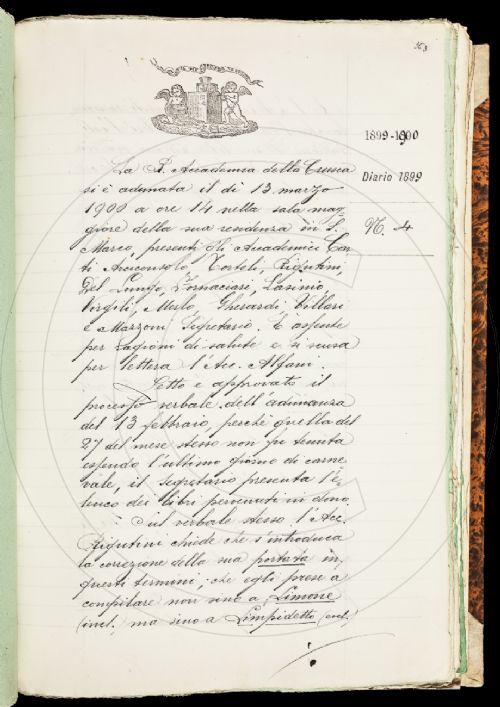 363
1899-1900
Diario 1899
N. 4
La R. Accademia della Crusca
si è adunata il dì 13 marzo
1900 a ore 14 nella sala mag-
giore della sua residenza in S.
Marco, presenti gli Accademici Con-
ti Arciconsolo, Tortoli, Rigutini,
Del Lungo, Fornaciari, Lasinio,
Virgili, Merlo, Gherardi, Villari
e Mazzoni Segretario. È assente
per cagioni di salute e si scusa
per lettera l'Acc. Alfani.
Letto e approvato il
processo verbale dell'adunanza
del 13 febbraio, perchè quella del
27 del mese stesso non fu tenuta
essendo l'ultimo giorno di carne
vale, il Segretario presenta l'e-
lenco dei libri pervenuti in dono.
Sul verbale stesso l'Acc.
Rigutini chiede che s'introduca
la correzione della sua portata in
questi termini: che egli prese a
compilare non sino a Limone
(incl.) ma sino a Limpidetto (incl.)